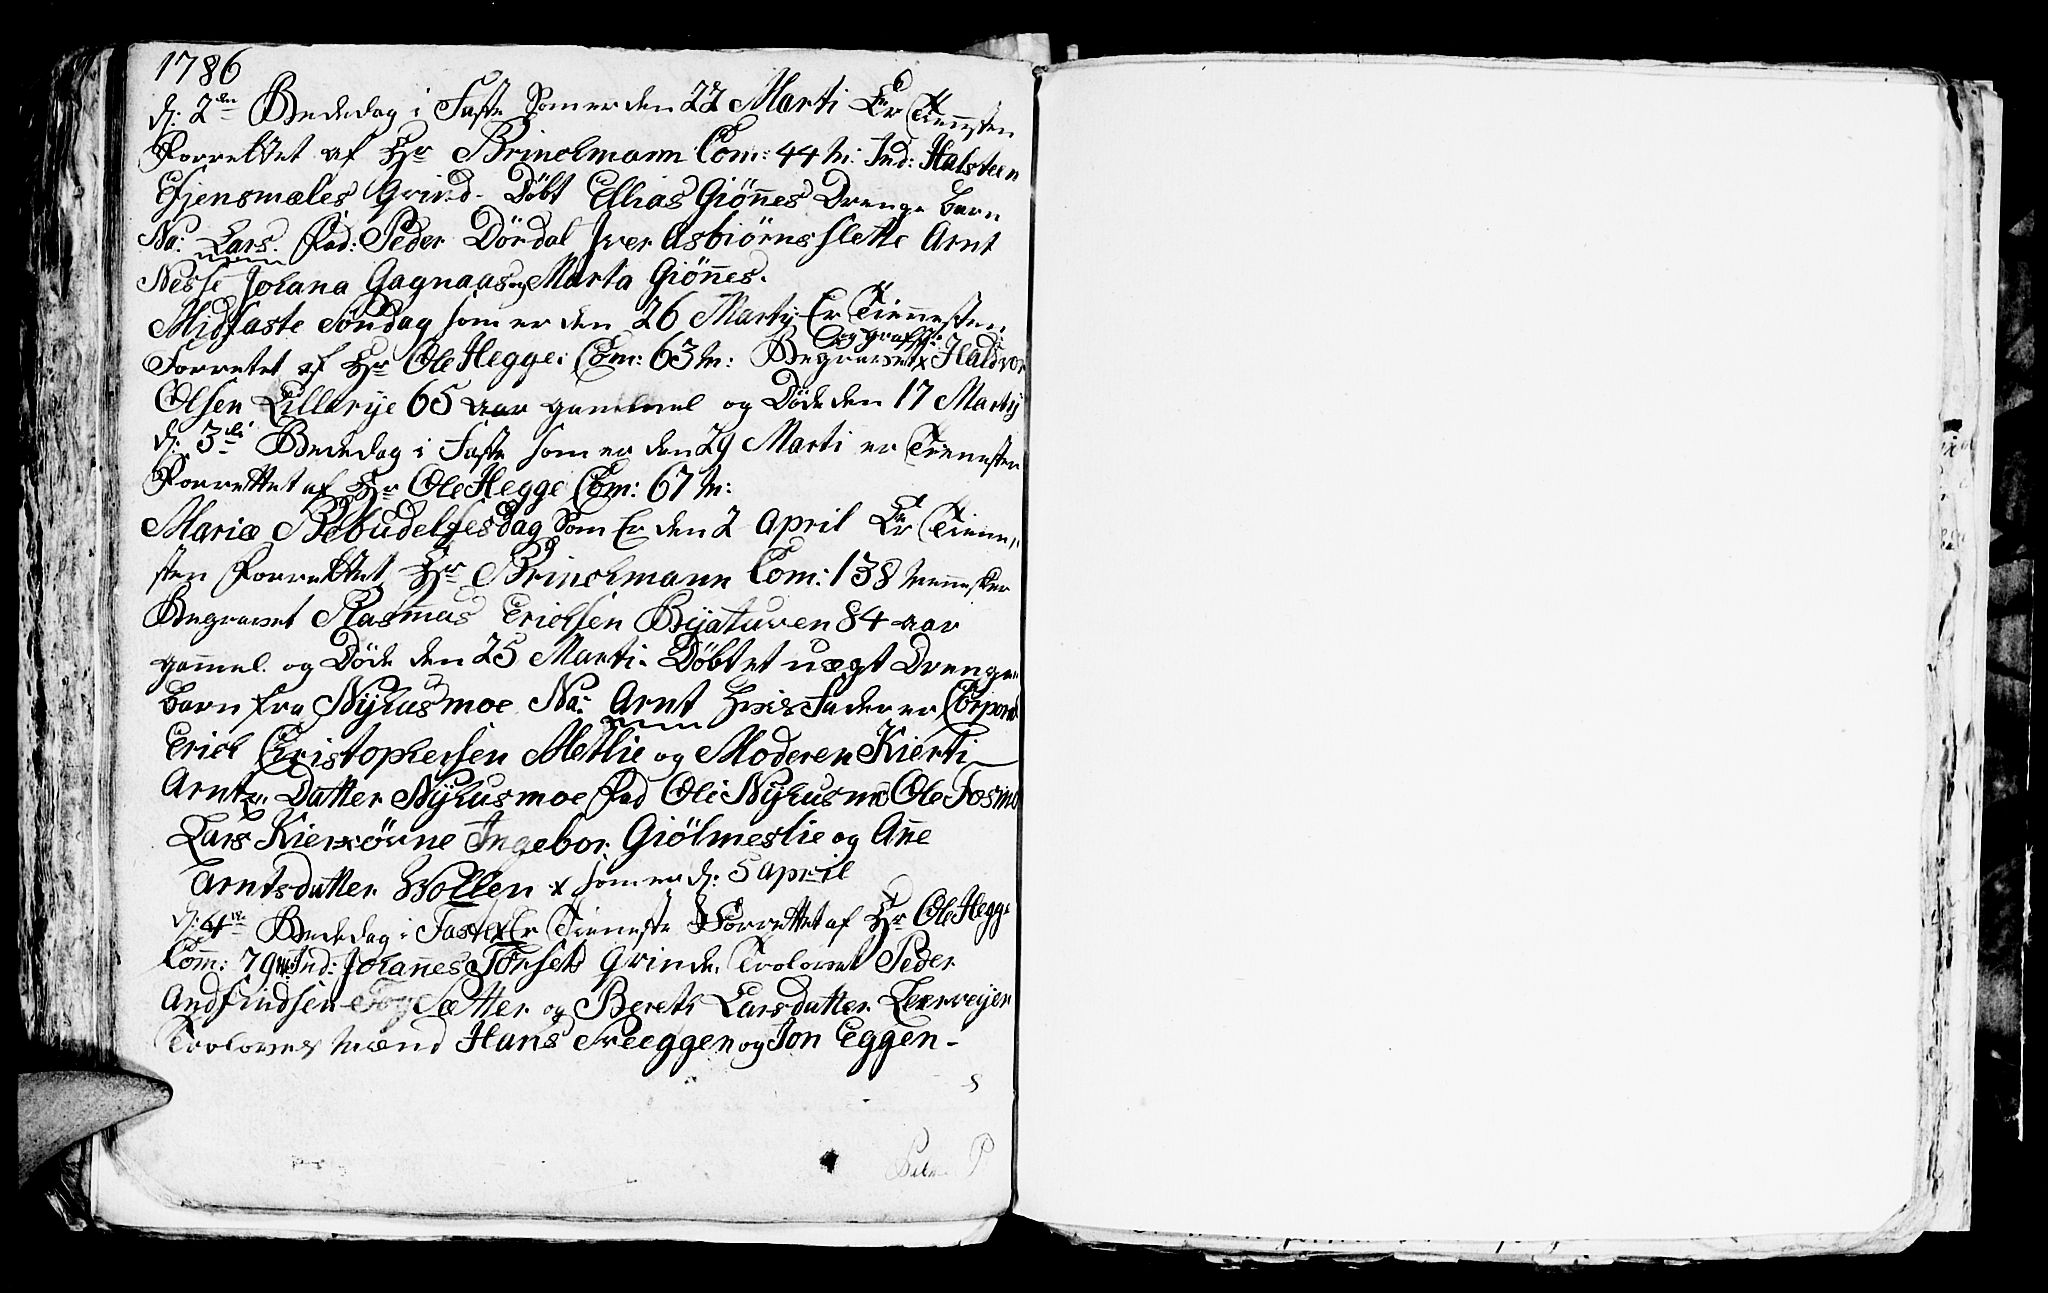 1786
d: 2den Bededag i Faste Som er den 22 Marti Er Tienesten
Forrettet af Hr Brinchmann Com: 44 M: Ind: Halsteen
Efjensmæles Grind. Døbt Ellias Giønnes Drenge barn
Na: Lars. Fad: Peder Dørdal Iver Asbiørnsslette Arnt
Nesse Johana Gagnaas og Marta Giønnes.
Midfaste Søndag som er den 26 Martij Er Tiennesten
Forretet af Hr Ole Hegge: Com: 63 M: Begravet Haldvor
Olsen Lillerye 65 aar gammel og Døde den 17 Martij
d: 3die Bededag i Faste som er den 29 Marti er Tienesten
Forrettet af Hr Ole Hegge Com: 67 M:
Mariæ Bebudelsesdag Som Er den 2 April Er Tiene„
sten Forrettet Hr Brinchmann Com: 138 Mennesker
Begravet Rasmus Erichsen Byatuven 84 aar
gammel. og Døde den 25 Marti. Døbt et uægt Drenge„
barn fra Nyhusmoe Na: Arnt hvis Fader er Corporal
Erich Christophersen Metlie og Moderen Kierti
Arnts Datter Nyhusmoe Fad Ole Nyhusmo Ole Fosmo
Lars Kierxørne Ingebor Giølmeslie og Ane
Arntsdatter Wollen x som er d: 5 April
d: 4de Bededag i Faste x Er Tieneste Forrettet af Hr Ole Hegge
Com: 79 M: Ind: Johannes Tørsets Grinde. Trolovet Peder
Andfindsen Fog Sætter og Berets Larsdatter Leerveyen
Trolovnes Mænd Hans Sneeggen og Jon Eggen -